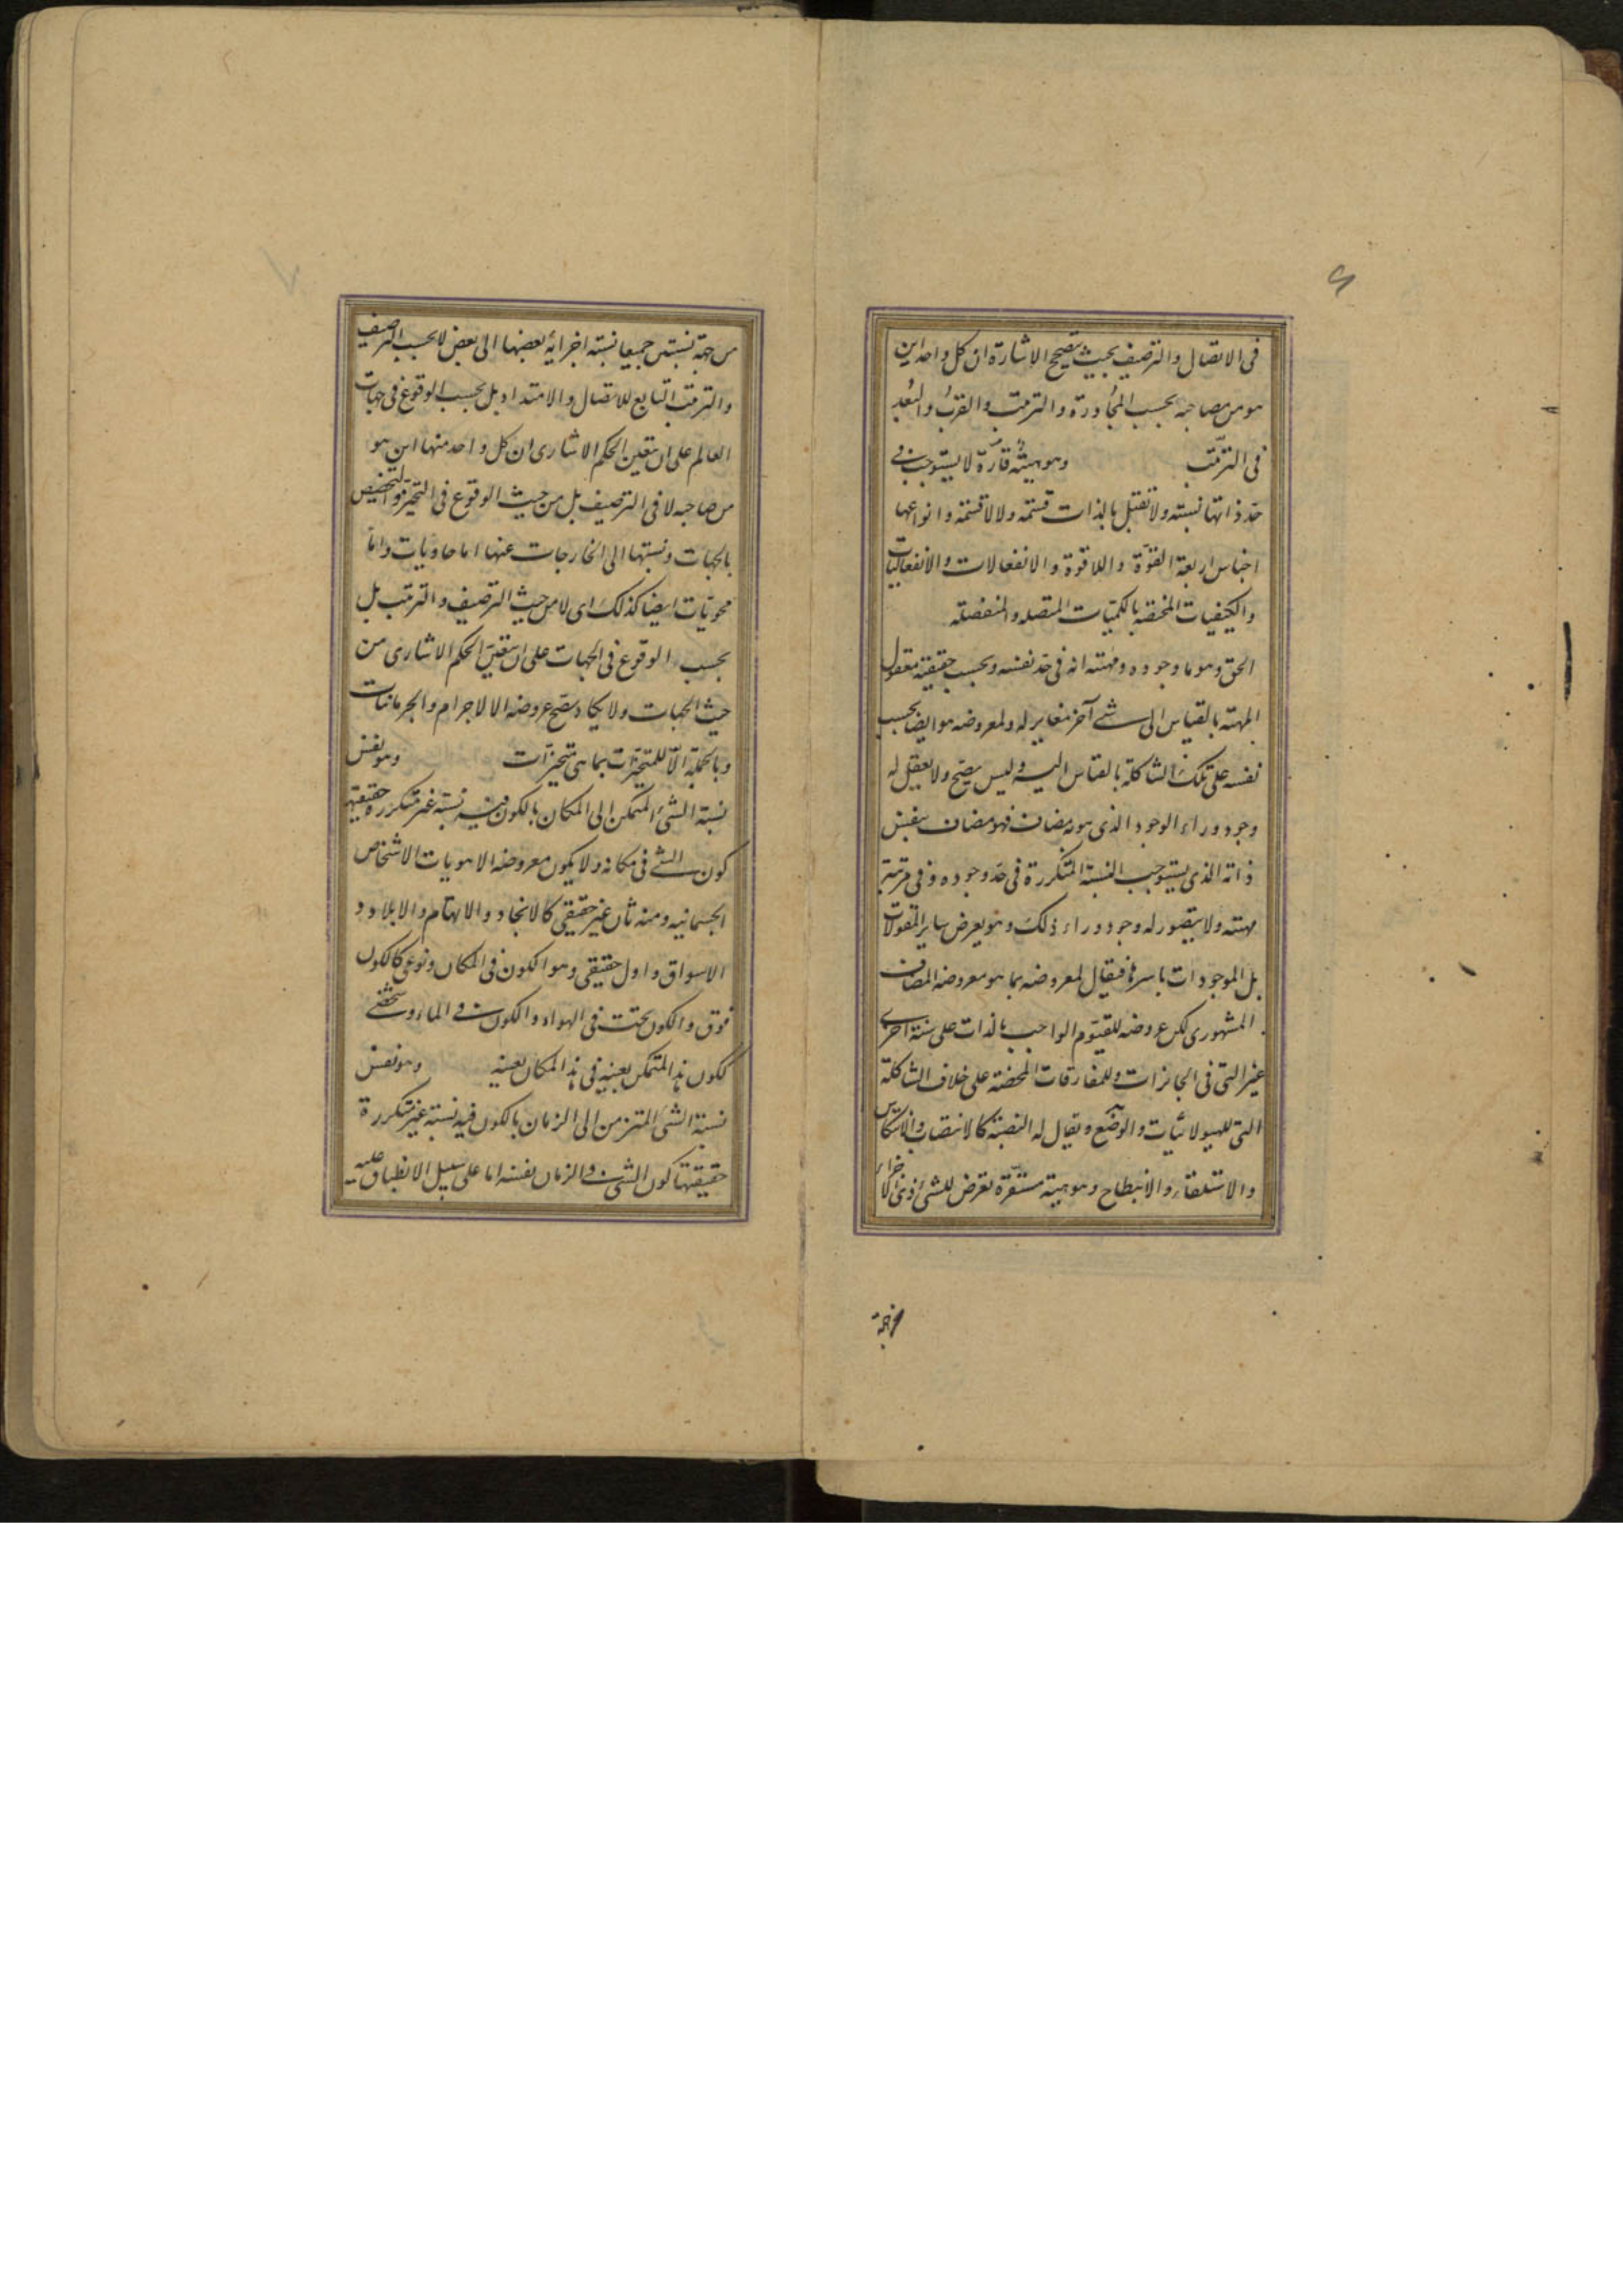 ۶
فى الاتصال والترصيف بحيث تصحح الاشارة ان كل واحد اين
هو من صاحبه بحسب المجاورة والترتب والقرب والبعد
فى الترتب وهو هيئة قارة لا يستوجب فى
حد ذاتها نسبته ولا تقبل بالذات قسمه ولا لا قسمة وانواعها
اجناس اربعة القوة واللا قوة والانفعالات والانفعاليات
والكيفيات المختصه بالكميات المتصله والمنفصله
الحق وهو ما وجوده ومهيته انه فى حد نفسه وبحسب حقيقته معقول
المهية بالقياس الى شئ آخر مغاير له ولمعروضه هو ايضا بحسب
نفسه على تلك الشاكلة بالقياس اليه وليس يصح ولا يعقل له
وجود وراء الوجود الذى هو به مضاف فهو مضاف بنفس
ذاته الذى يستوجب النسبة المتكررة فى حد وجوده وفى مرتبة
مهيته ولا يتصور له وجود وراء ذلك وهو يعرض ساير المقولات
بل الموجودات باسرها فيقال لمعروضه بما هو معروضه المضاف
المشهورى لكن عروضه للقيوم الواجب بالذات على سنة اخرى
غير التى فى الجايزات وللمفارقات المحضة على خلاف الشاكلة
التى للهيولانيات والوضع ويقال له النصبة كالانتصاب والانتكاس
والاستلقاء والانبطاح وهو هيئة مستقرة تعرض للشئ ذى الاجزاء
من جهة
۷
من جهة نسبتين جميعا نسبة اجزائه بعضها الى بعض لا بحسب الترصيف
والترتب التابع للاتصال والامتداد بل بحسب الوقوع فى جهات
العالم على ان يتعين الحكم الاشارى ان كل واحد منها اين هو
من صاحبه لا فى الترصيف بل من حيث الوقوع فى التحيز والتخصيص
بالجهات ونسبتها الى الخارجات عنها اما حاويات واما
محويات ايضا كذلك اى لا من حيث الترصيف والترتب بل
بحسب الوقوع فى الجهات على ان يتعين الحكم الاشارى من
حيث الجهات ولا يكاد يصح عروضه الا للاجرام والجرمانيات
وبالجملة الا للمتحيزات بما هى متحيزات وهو نفس
نسبة الشئ المتمكن الى المكان بالكون فيه نسبة غير متكررة حقيقتها
كون الشئ فى مكانه ولا يكون معروضه الا هويات الاشخاص
الجسمانيه ومنه ثان غير حقيقى كالانجاد والاتهام والابلاد و
الاسواق واول حقيقى وهو الكون فى المكان ونوعى كالكون
فوق والكون تحت فى الهواء والكون فى الماء وشخصى
ككون هذا المتمكن بعينه فى هذا المكان بعينه وهو نفس
نسبة الشئ المتزمن الى الزمان بالكون فيه نسبة غير متكررة
حقيقتها كون الشئ فى الزمان نفسه اما على سبيل الانطباق عليه